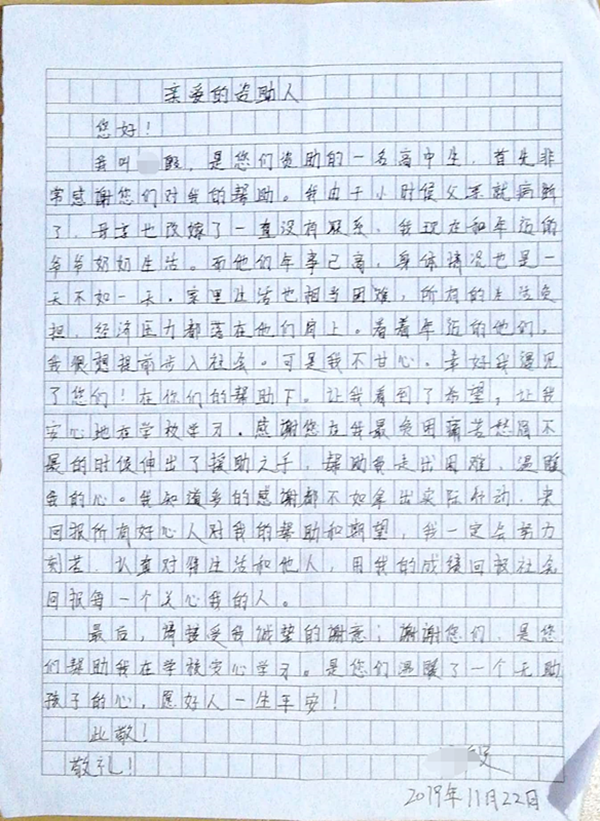 亲爱的资助人
您好！
我叫 毅，是您们资助的一名高中生，首先非
常感谢您们对我的帮助。我由于小时候父亲就病逝
了，母亲也改嫁了一直没有联系，我现在和年迈的
爷爷奶奶生活。而他们年事已高，身体情况也是一
天不如一天．家里生活也相当困难，所有的生活负
担，经济压力都落在他们肩上。看着年迈的他们，
我很想提前步入社会。可是我不甘心。幸好我遇见
了您们！在你们的帮助下。让我看到了希望，让我
安心地在学校学习．感谢您在我最负困痛苦愁眉不
展的时候伸出了援助之手，帮助我走出困难，温暖
我的心。我知道多的感谢都不如拿出实际行动，来
回报所有好心人对我的帮助和期望，我一定会努力
刻苦．认真对待生活和他人，用我的成绩回报社会
回报每一个关心我的人。
最后，请接受我诚挚的谢意；谢谢您们，是您
们帮助我在学校安心学习。是您们温暖了一个无助
孩子的心，愿好人一生平安！
此敬！
敬礼！
2019年11月22日